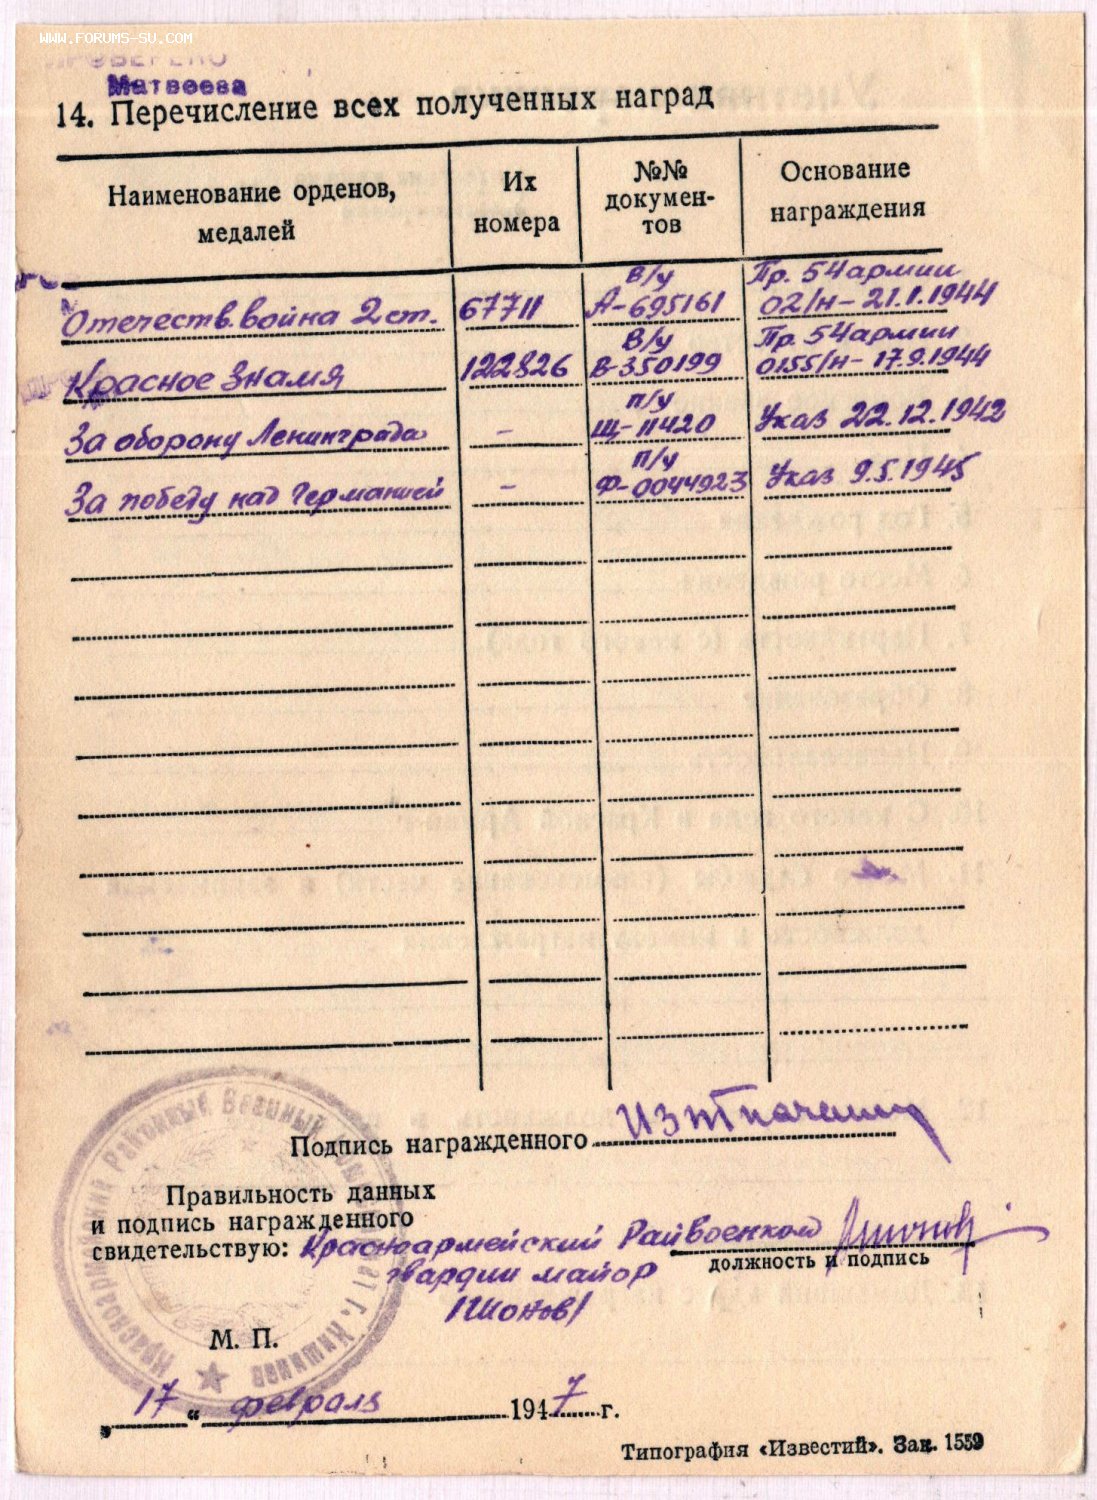 WWW.FORUMS-SU.COM
ПРОВЕРЕНО
Матвеева
14. Перечисление всех полученных наград
Наименование орденов, медалей
Их номера
№№ докумен-тов
Основание награждения
Отечеств. война 2 ст. 67711 В/у А-695161 Пр. 54 армии 02/н - 21.1.1944
Красное Знамя 122826 В/у В-350199 Пр. 54 армии 0155/н - 17.9.1944
За оборону Ленинграда - п/у Щ-11420 Указ 22.12.1942
За победу над Германией - п/у Ф-0044923 Указ 9.5.1945
Подпись награжденного
Правильность данных
и подпись награжденного
свидетельствую: Красноармейский Райвоенком
должность и подпись
гвардии майор
М. П.
Красноармейский Районный Военный Комиссариат г. Кишинев
„ 17 “ февраля 1947 г.
Типография «Известий». Зак. 1559